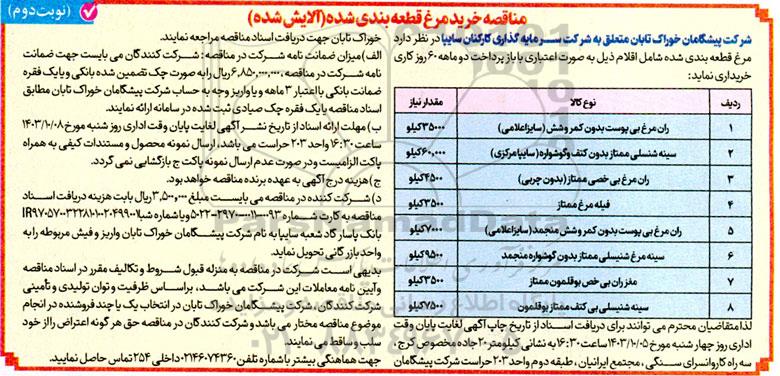 مناقصه خرید مرغ قطعه بندی شده (آلایش شده)
(نوبت دوم)
شرکت پیشگامان خوراک تابان متعلق به شرکت سرمایه گذاری کارکنان سایپا در نظر دارد
مرغ قطعه بندی شده شامل اقلام ذیل به صورت اعتباری با باز پرداخت دو ماهه ۶۰ روز کاری
خریداری نماید:
ردیف نوع کالا مقدار نیاز
۱ ران مرغ بی پوست بدون کمر وش (سایز اعلامی) ۳۵۰۰۰کیلو
۲ سینه شنسلی ممتاز بدون کتف وگوشواره (سایپا مرکزی) ۶۰,۰۰۰کیلو
۳ ران مرغ بی خصی ممتاز (بدون چربی) ۴۵۰۰کیلو
۴ فیله مرغ ممتاز ۳۵۰۰کیلو
۵ ران مرغ بی پوست بدون کمر وش منجمد (سایز اعلامی) ۷۰۰۰کیلو
۶ سینه مرغ شنیسلی ممتاز بدون گوشواره منجمد ۹۵۰۰کیلو
۷ مغز ران بی خص بوقلمون ممتاز ۳۵۰۰کیلو
۸ سینه شنیسلی بی کتف ممتاز بوقلمون ۷۵۰۰کیلو
لذا متقاضیان محترم می توانند برای دریافت اسناد از تاریخ چاپ آگهی لغایت پایان وقت
اداری روز چهار شنبه مورخ ۱۴۰۳/۱۰/۰۵ ساعت ۱۶:۳۰ به نشانی کیلومتر ۲۰ جاده مخصوص کرج ،
سه راه کاروانسرای سنگی ، مجتمع ایرانیان ، طبقه دوم واحد ۲۰۳ حراست شرکت پیشگامان
خوراک تابان جهت دریافت اسناد مناقصه مراجعه نمایند.
الف) میزان ضمانت نامه شرکت در مناقصه : شرکت کنندگان می بایست جهت ضمانت
نامه شرکت در مناقصه ، ۶,۸۵۰,۰۰۰,۰۰۰ ریال را به صورت چک تضمین شده بانکی و یا یک فقره
ضمانت بانکی با اعتبار ۳ ماهه و یا واریز وجه به حساب شرکت پیشگامان خوراک تابان مطابق
اسناد مناقصه یا یک فقره چک صیادی ثبت شده در سامانه ارائه نمایند.
ب) مهلت ارائه اسناد از تاریخ نشر آگهی لغایت پایان وقت اداری روز شنبه مورخ ۱۴۰۳/۱۰/۰۸
ساعت ۱۶:۳۰ واحد ۲۰۳ حراست می باشد، ارسال نمونه محصول و مستندات کیفی به همراه
پاکت الزامیست و در صورت عدم ارسال نمونه پاکت ج بازگشایی نمی گردد.
ج) هزینه درج آگهی به عهده برنده مناقصه خواهد بود.
د) شرکت کننده در مناقصه می بایست مبلغ ۳,۵۰۰,۰۰۰ ریال بابت هزینه دریافت اسناد
مناقصه به کارت شماره
بانک پاسارگاد شعبه سایپا به نام شرکت پیشگامان خوراک تابان واریز و فیش مربوطه را به
واحد بازرگانی تحویل نماید.
بدیهی است شرکت در مناقصه به منزله قبول شروط و تکالیف مقرر در اسناد مناقصه
وآیین نامه معاملات این شرکت می باشد، براساس ظرفیت و توان تولیدی و تأمینی
شرکت کنندگان، شرکت پیشگامان خوراک تابان در انتخاب یک یا چند فروشنده در انجام
موضوع مناقصه مختار می باشد و شرکت کنندگان در مناقصه حق هر گونه اعتراض را از خود
سلب و ساقط می نمایند.
جهت هماهنگی بیشتر با شماره تلفن ۰۲۱۴۶۰۷۴۳۶۰ داخلی ۲۵۴ تماس حاصل نمایید.